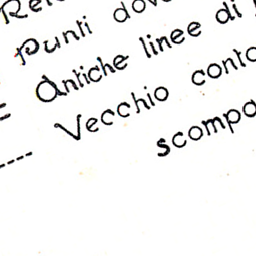 Punti dov
Antiche linee di
Vecchio conto
scompa